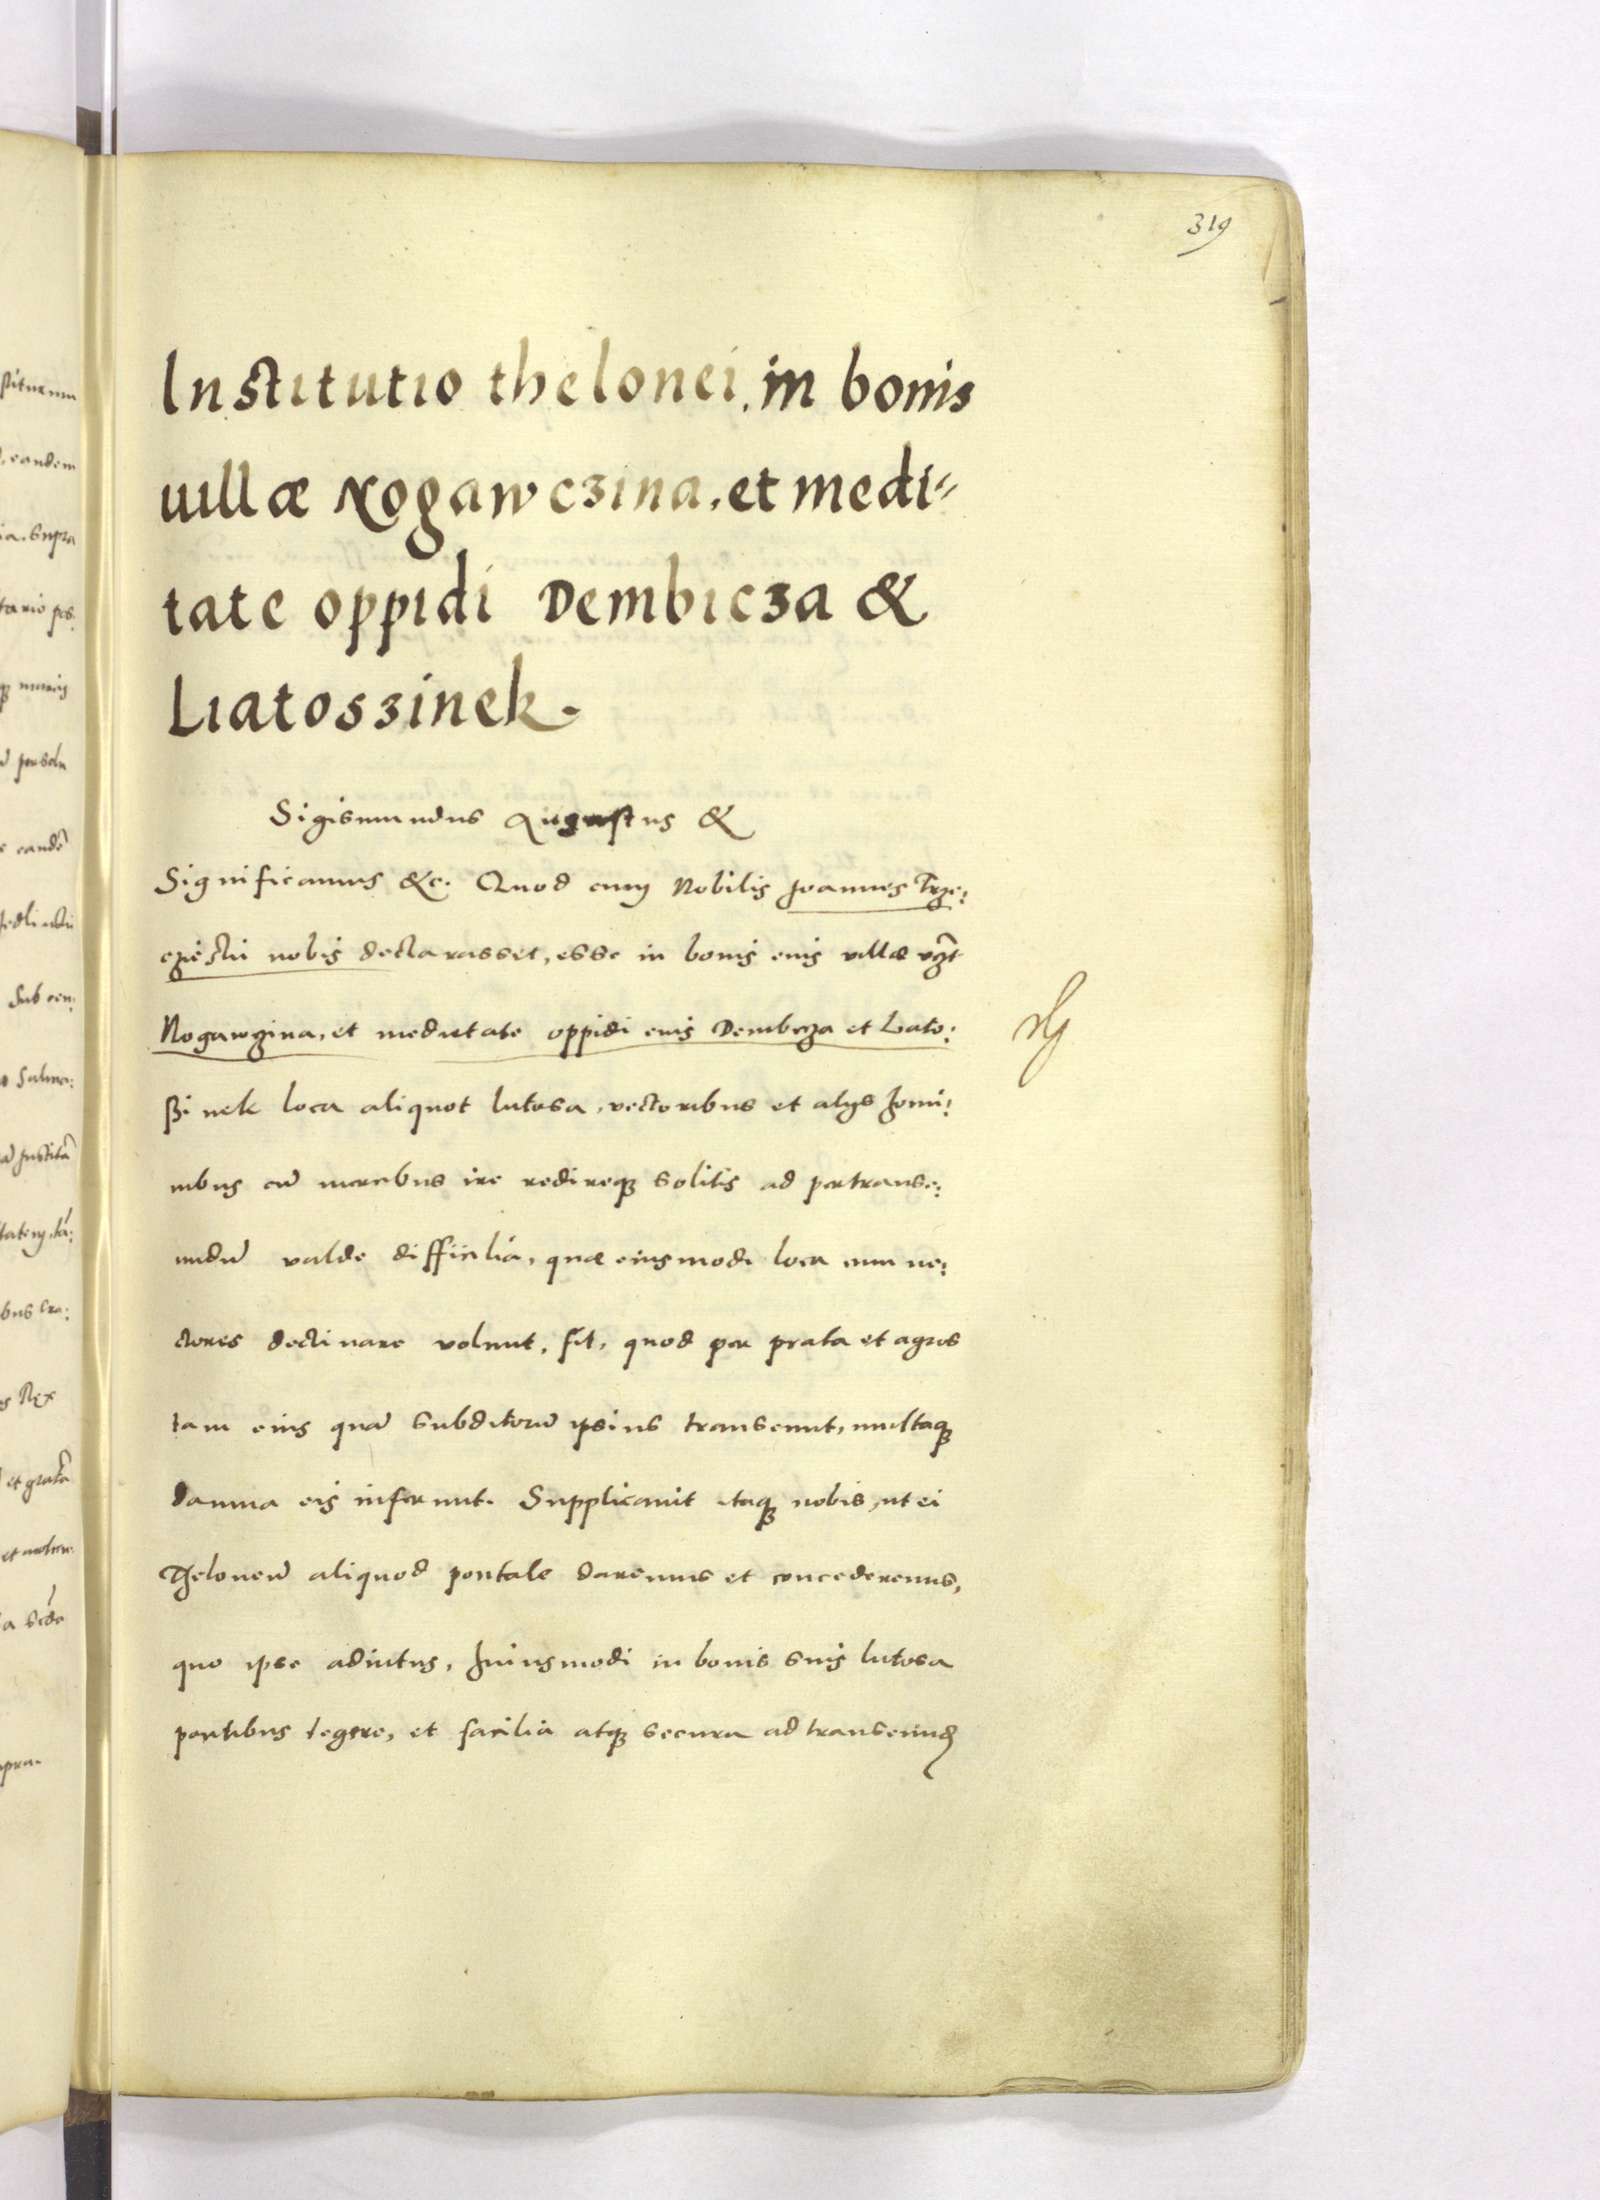 319
Institutio thelonei, in bonis
uillæ Nogawczina, et medi=
tate oppidi Dembicza &
Liatoszinek.
Sigismundus Augustus &
Significamus &c. Quod cum Nobilis Joannes Trze:
nobis declarasset, esse in bonis eius villæ
Nogawczina, et medietate oppidi eius Dembicza et Lato:
ßinek loca aliquot lutosa, vectoribus et alijs homi:
nibus cū mercibus ire redireqꝫ solitis ad pertranse:
undū valde difficilia, quæ eiusmodi loca cum ve:
ctores declinare volunt, fit, quod per prata et agros
tam eius quā subditorū ipsius transeunt, multaqꝫ
damna eis inferunt. Supplicauit itaqꝫ nobis, ut ei
Theloneū aliquod pontale daremus et concederemus,
quo ipse adiutus, huiusmodi in bonis suis lutosa
pontibus tegere, et facilia atqꝫ secura ad transeund